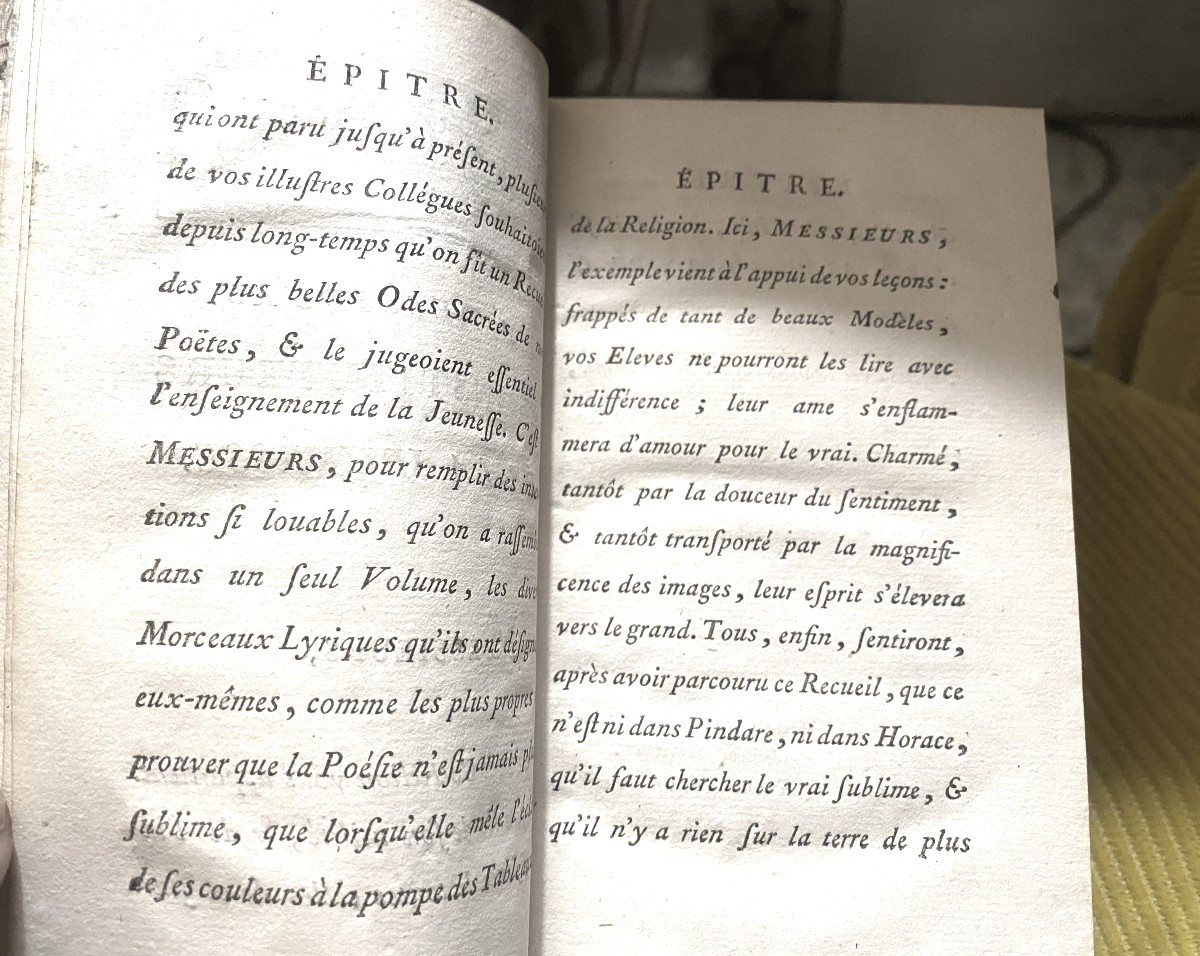 ÉPITRE.
qui ont paru juſqu'à préſent,
de vos illuſtres Collégues
depuis long-temps qu'on fît un
des plus belles Odes Sacrées de
Poëtes, & le jugeoient eſſentiel
l'enſeignement de la Jeuneſſe. C'eſt
MESSIEURS, pour remplir des
tions ſi louables, qu'on a
dans un ſeul Volume, les
Morceaux Lyriques qu'ils ont
eux-mêmes, comme les plus propres
prouver que la Poéſie n'eſt jamais
ſublime, que lorſqu'elle mêle
de ſes couleurs à la pompe des
ÉPITRE.
de la Religion. Ici, MESSIEURS,
l'exemple vient à l'appui de vos leçons :
frappés de tant de beaux Modèles,
vos Eleves ne pourront les lire avec
indifférence ; leur ame s'enflam-
mera d'amour pour le vrai. Charmé,
tantôt par la douceur du ſentiment,
& tantôt tranſporté par la magnifi-
cence des images, leur eſprit s'élevera
vers le grand. Tous, enfin, ſentiront,
après avoir parcouru ce Recueil, que ce
n'eſt ni dans Pindare, ni dans Horace,
qu'il faut chercher le vrai ſublime, &
qu'il n'y a rien ſur la terre de plus